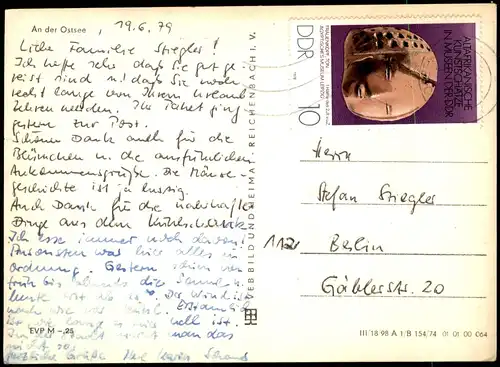 An der Ostsee, 19.6.79
Liebe Familie Stiegler!
Ich hoffe sehr daß Sie gut ge-
reist sind u. daß Sie noch
recht lange von Ihrem Urlaub
zehren werden. Ihr Paket ging
gestern zur Post.
Schönen Dank auch für die
Blümchen u. die ausführlichen
Ankommensgrüße. Die Mäuse-
geschichte ist ja lustig.
Auch Dank für die nahrhaften
Dinge aus dem Kühlschrank
Ich esse immer noch davon!
Ansonsten war hier alles in
Ordnung. Gestern schien von
früh bis abends die Sonne,
heute
Der Wind ist
noch wie vor
Erstaunlich
hell ist.
man das
nicht so
herzliche Grüße
EVP M -,25
VEB BILD UND HEIMAT · REICHENBACH I. V.
ALTAFRIKANISCHE
KUNSTSCHÄTZE
IN MUSEEN DER DDR
DDR
10
Herrn
Stefan Stiegler
112 Berlin
Gäblerstr. 20
III 18 98 A 1/B 154/74 01 01 00 064